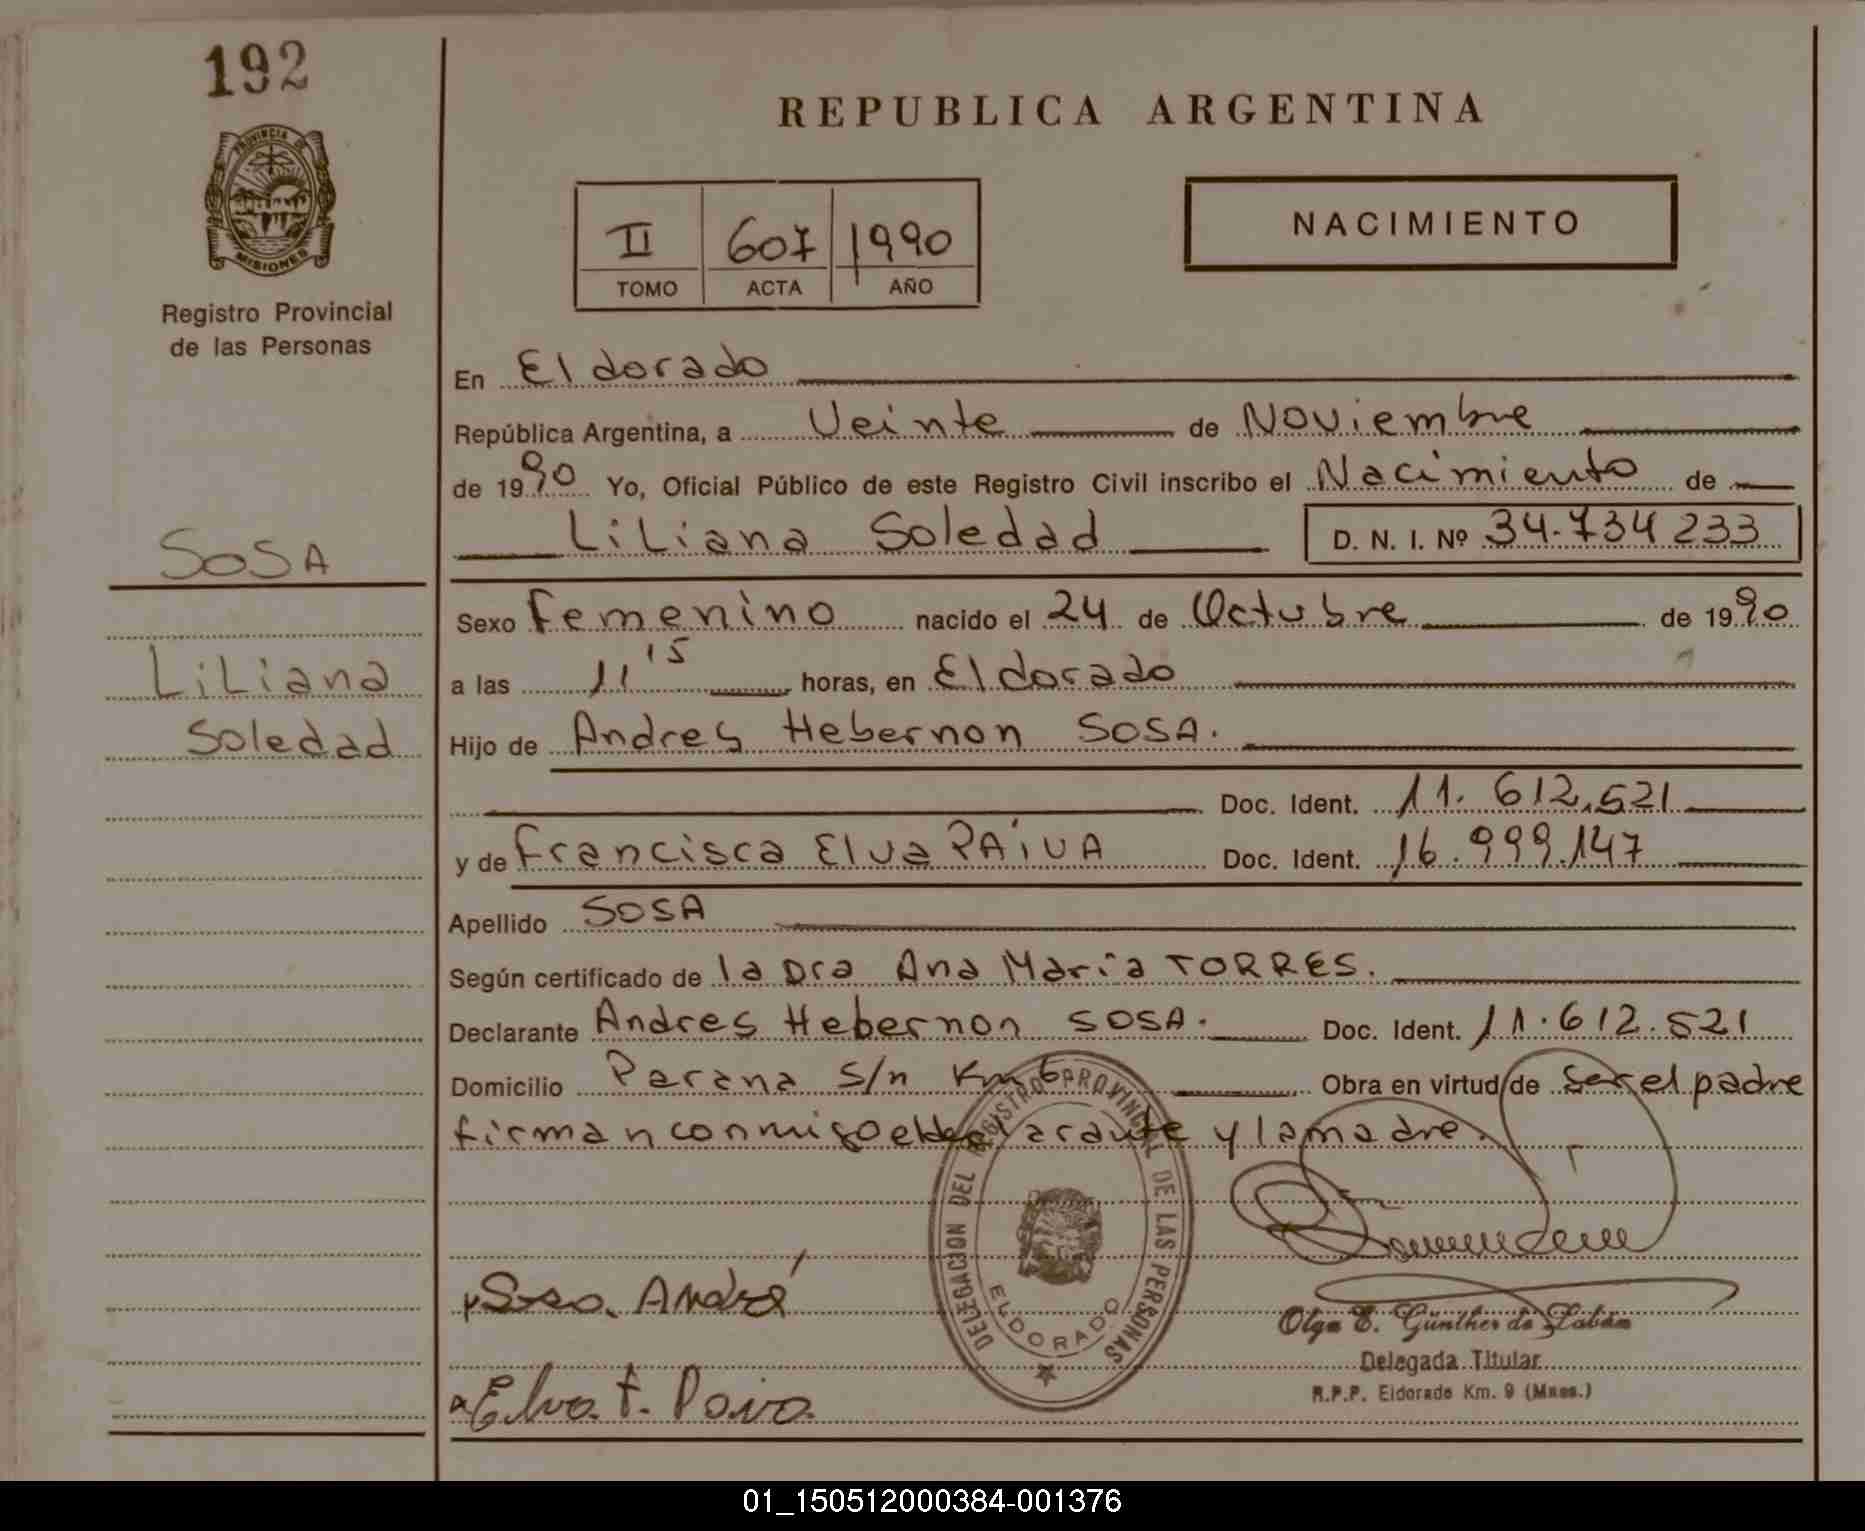 192
PROVINCIA DE
MISIONES
Registro Provincial
de las Personas
SOSA
Liliana
Soledad
REPUBLICA ARGENTINA
II 607 1990
TOMO ACTA AÑO
NACIMIENTO
En Eldorado
República Argentina, a Veinte de Noviembre
de 1990 Yo, Oficial Público de este Registro Civil inscribo el Nacimiento de
Liliana Soledad D. N. I. Nº 34.734 233
Sexo Femenino nacido el 24 de Octubre de 1990
a las 11 15 horas, en Eldorado
Hijo de Andres Hebernon SOSA.
Doc. Ident. 11. 612.521
y de Francisca Elva PAIVA Doc. Ident. 16.999.147
Apellido SOSA
Según certificado de la Dra Ana María TORRES.
Declarante Andres Hebernon SOSA. Doc. Ident. 11.612.521
Domicilio Parana s/n Km 6 Obra en virtud de ser el padre
firman conmigo el declarante y la madre.
DELEGACION DEL REGISTRO PROVINCIAL DE LAS PERSONAS
ELDORADO
Sosa. André
Elva F. Paiva
Olga E. Günther de Labán
Delegada Titular
R.P.P. Eldorado Km. 9 (Mnes.)
01_150512000384-001376